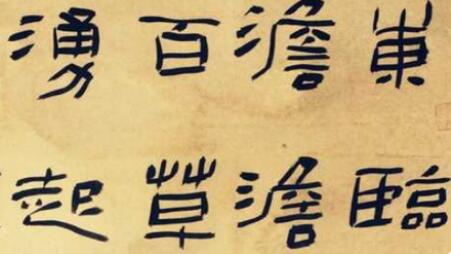 東臨
澹澹
百草
湧起